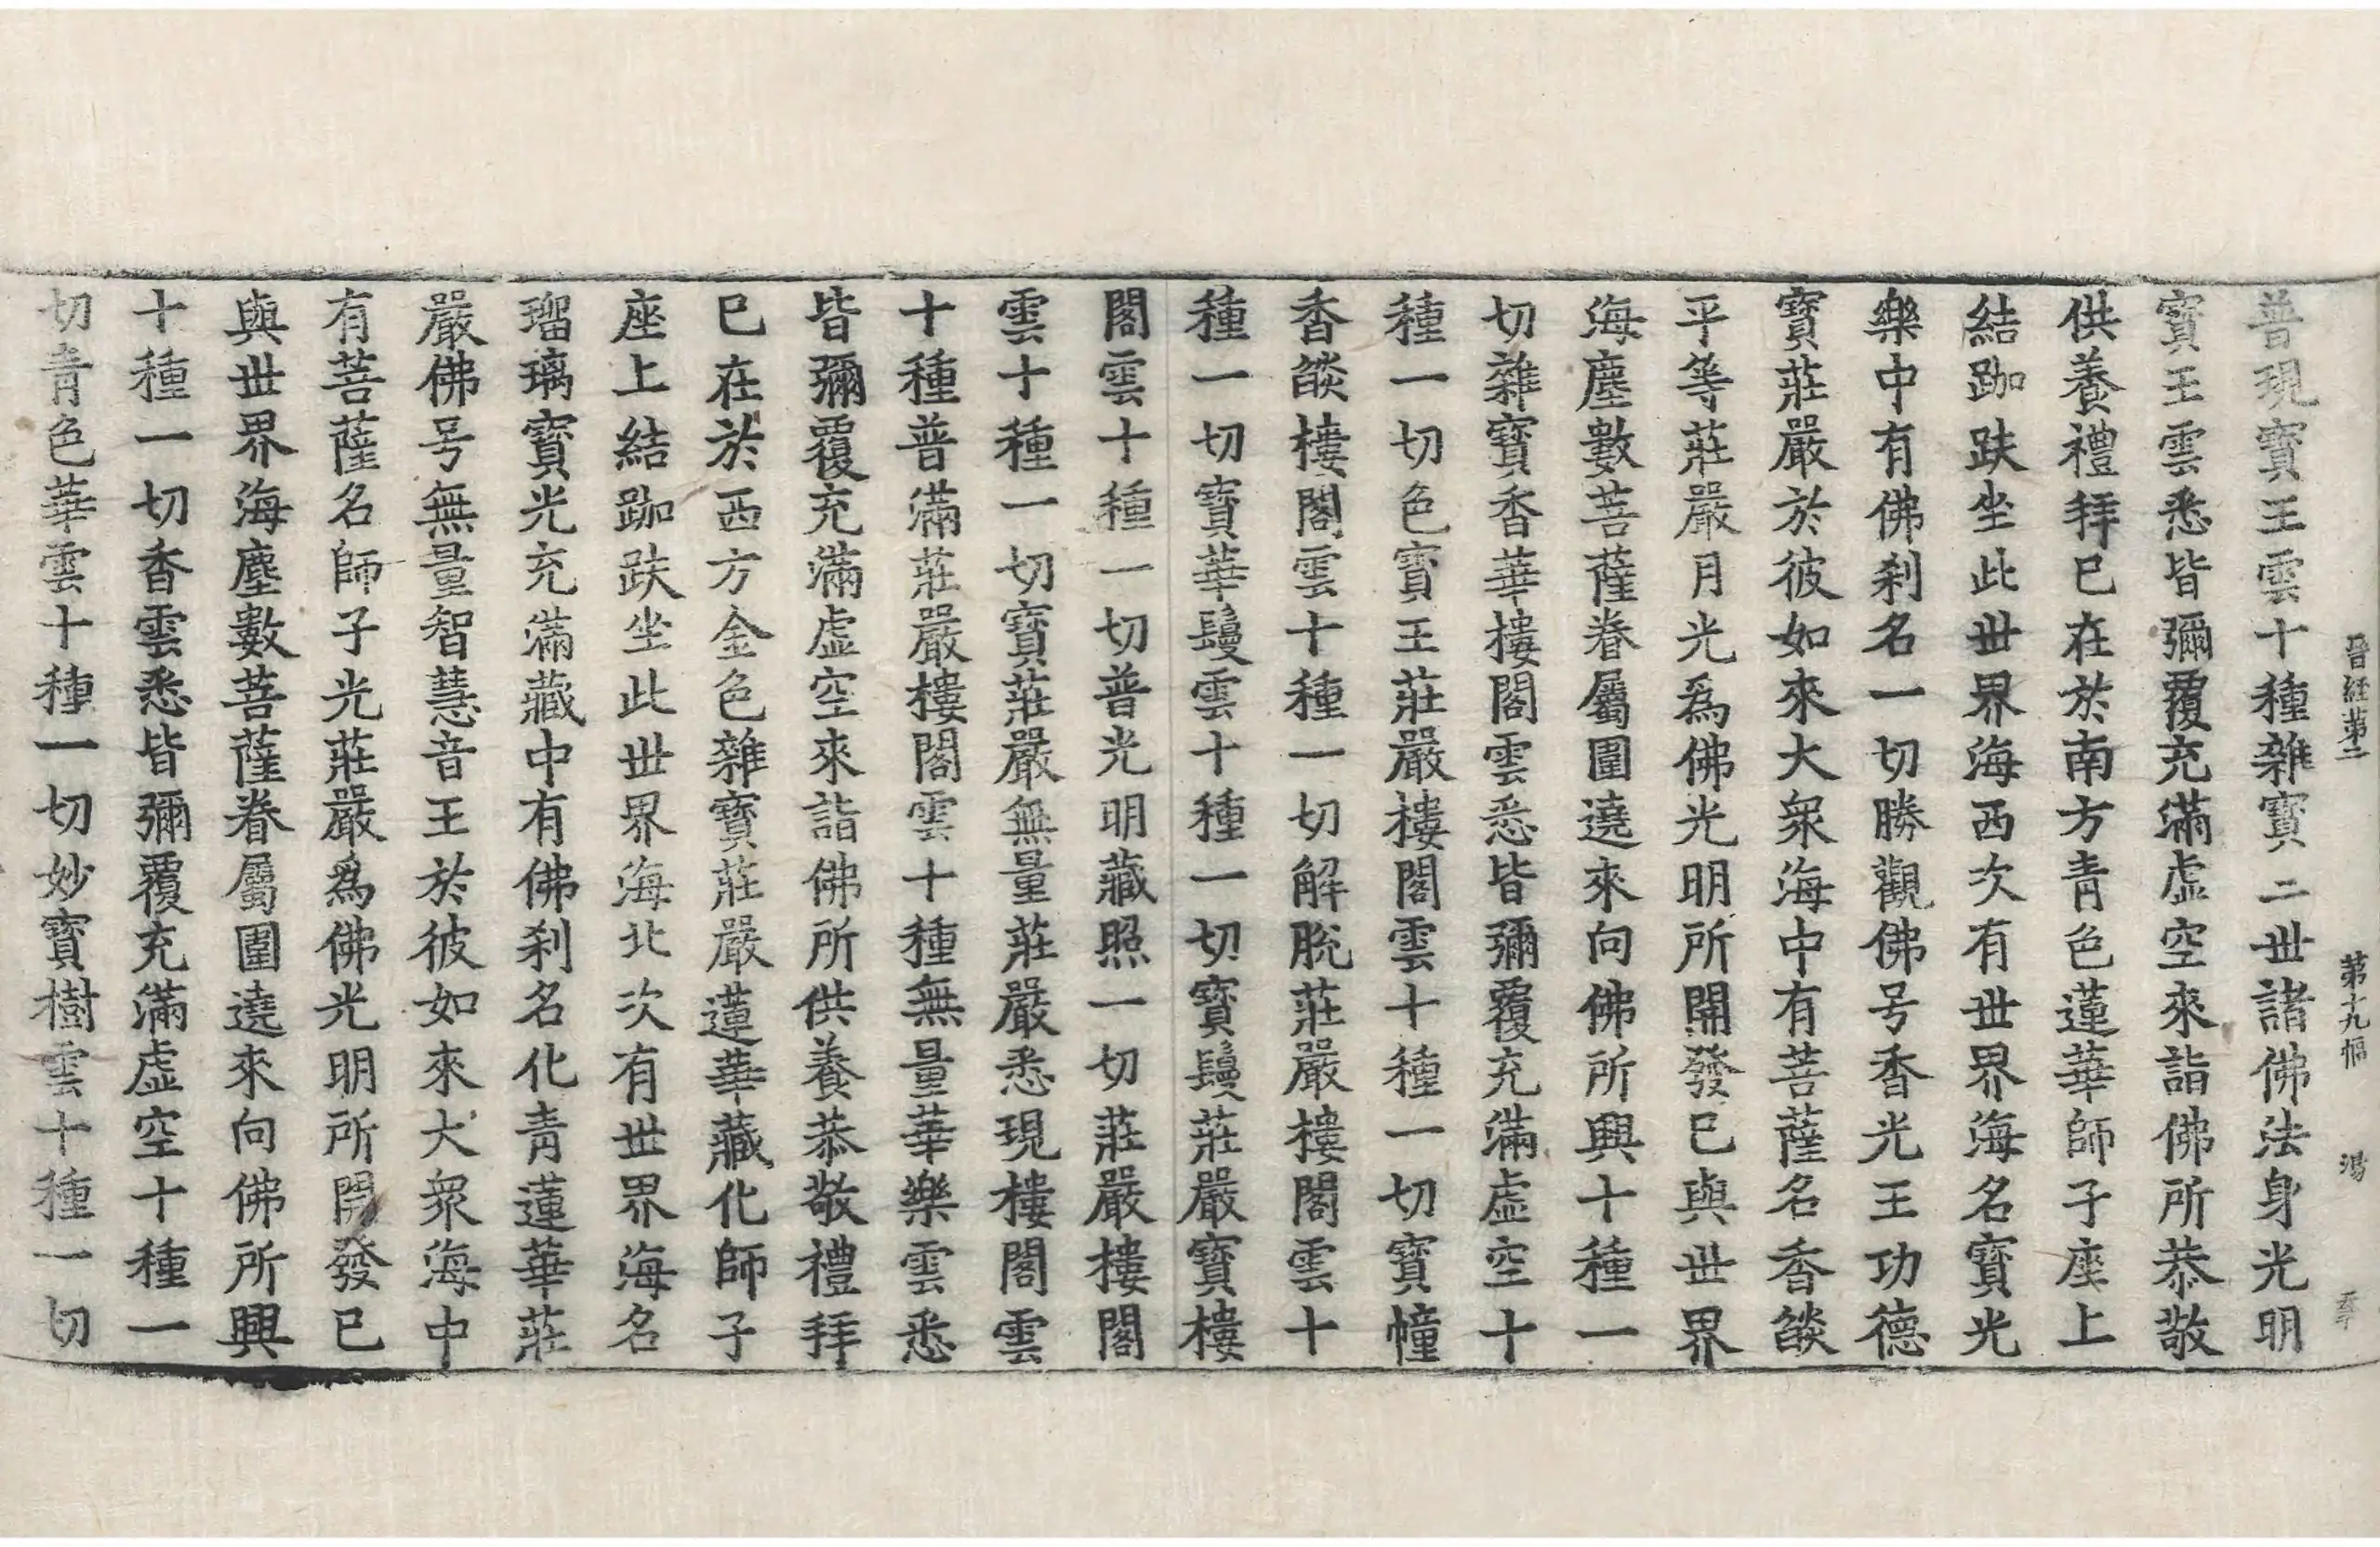 晉經第二 第十九幅 湯
普現寶王雲十種雜寶二世諸佛法身光明
寶王雲悉皆彌覆充滿虛空來詣佛所恭敬
供養禮拜已在於南方青色蓮華師子座上
結跏趺坐此世界海西次有世界海名寶光
樂中有佛刹名一切勝觀佛号香光王功德
寶莊嚴於彼如來大衆海中有菩薩名香燄
平等莊嚴月光爲佛光明所開發已與世界
海塵數菩薩眷屬圍遶來向佛所興十種一
切雜寶香華樓閣雲悉皆彌覆充滿虛空十
種一切色寶王莊嚴樓閣雲十種一切寶幢
香燄樓閣雲十種一切解脫莊嚴樓閣雲十
種一切寶華鬘雲十種一切寶鬘莊嚴寶樓
閣雲十種一切普光明藏照一切莊嚴樓閣
雲十種一切寶莊嚴無量莊嚴悉現樓閣雲
十種普滿莊嚴樓閣雲十種無量華樂雲悉
皆彌覆充滿虛空來詣佛所供養恭敬禮拜
已在於西方金色雜寶莊嚴蓮華藏化師子
座上結跏趺坐此世界海北次有世界海名
瑠璃寶光充滿藏中有佛刹名化青蓮華莊
嚴佛号無量智慧音王於彼如來大衆海中
有菩薩名師子光莊嚴爲佛光明所開發已
與世界海塵數菩薩眷屬圍遶來向佛所興
十種一切香雲悉皆彌覆充滿虛空十種一
切青色華雲十種一切妙寶樹雲十種一切